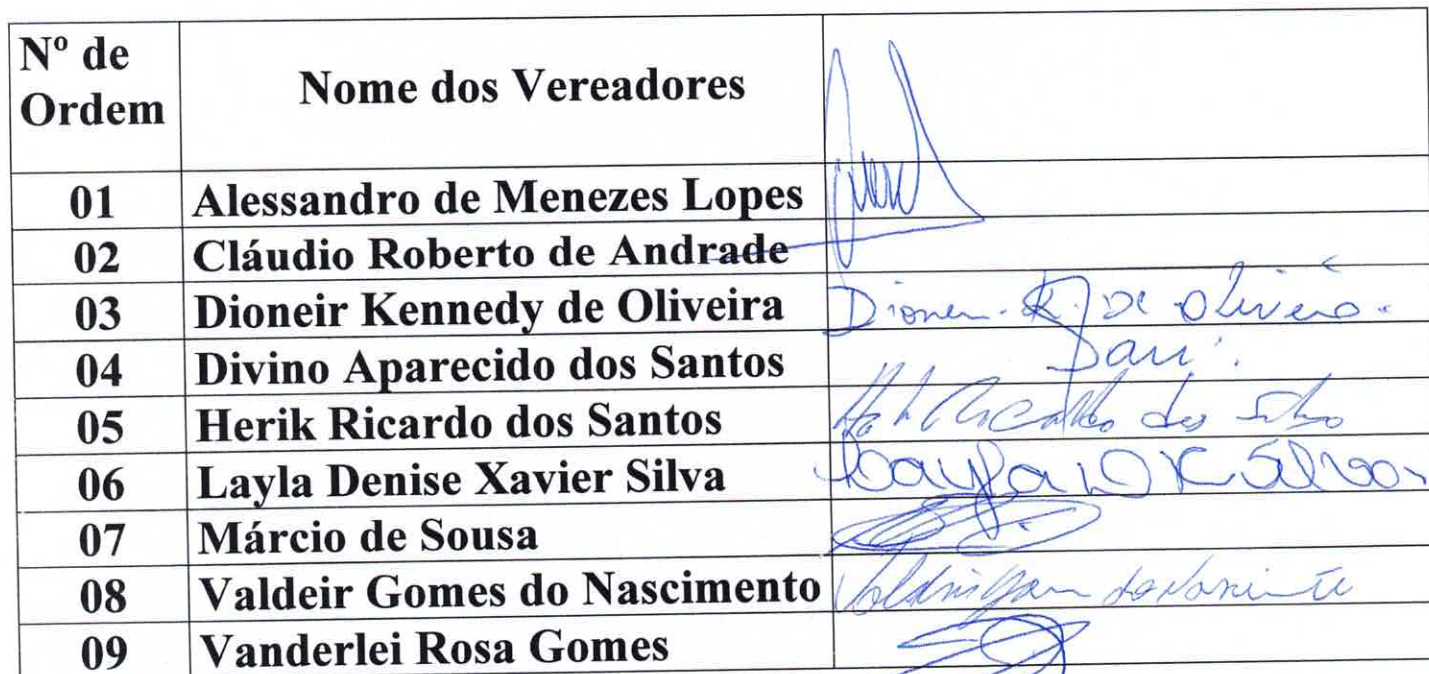 Nº de
Ordem
Nome dos Vereadores
01 Alessandro de Menezes Lopes
02 Cláudio Roberto de Andrade
03 Dioneir Kennedy de Oliveira Dioneir K. de Oliveira
04 Divino Aparecido dos Santos
05 Herik Ricardo dos Santos Ricardo dos
06 Layla Denise Xavier Silva Layla D X Silva
07 Márcio de Sousa
08 Valdeir Gomes do Nascimento
09 Vanderlei Rosa Gomes